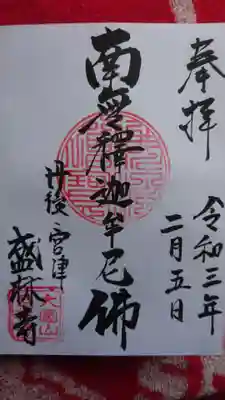 奉拝
令和三年
二月五日
南無釋迦牟尼佛
丹後 宮津
盛林寺